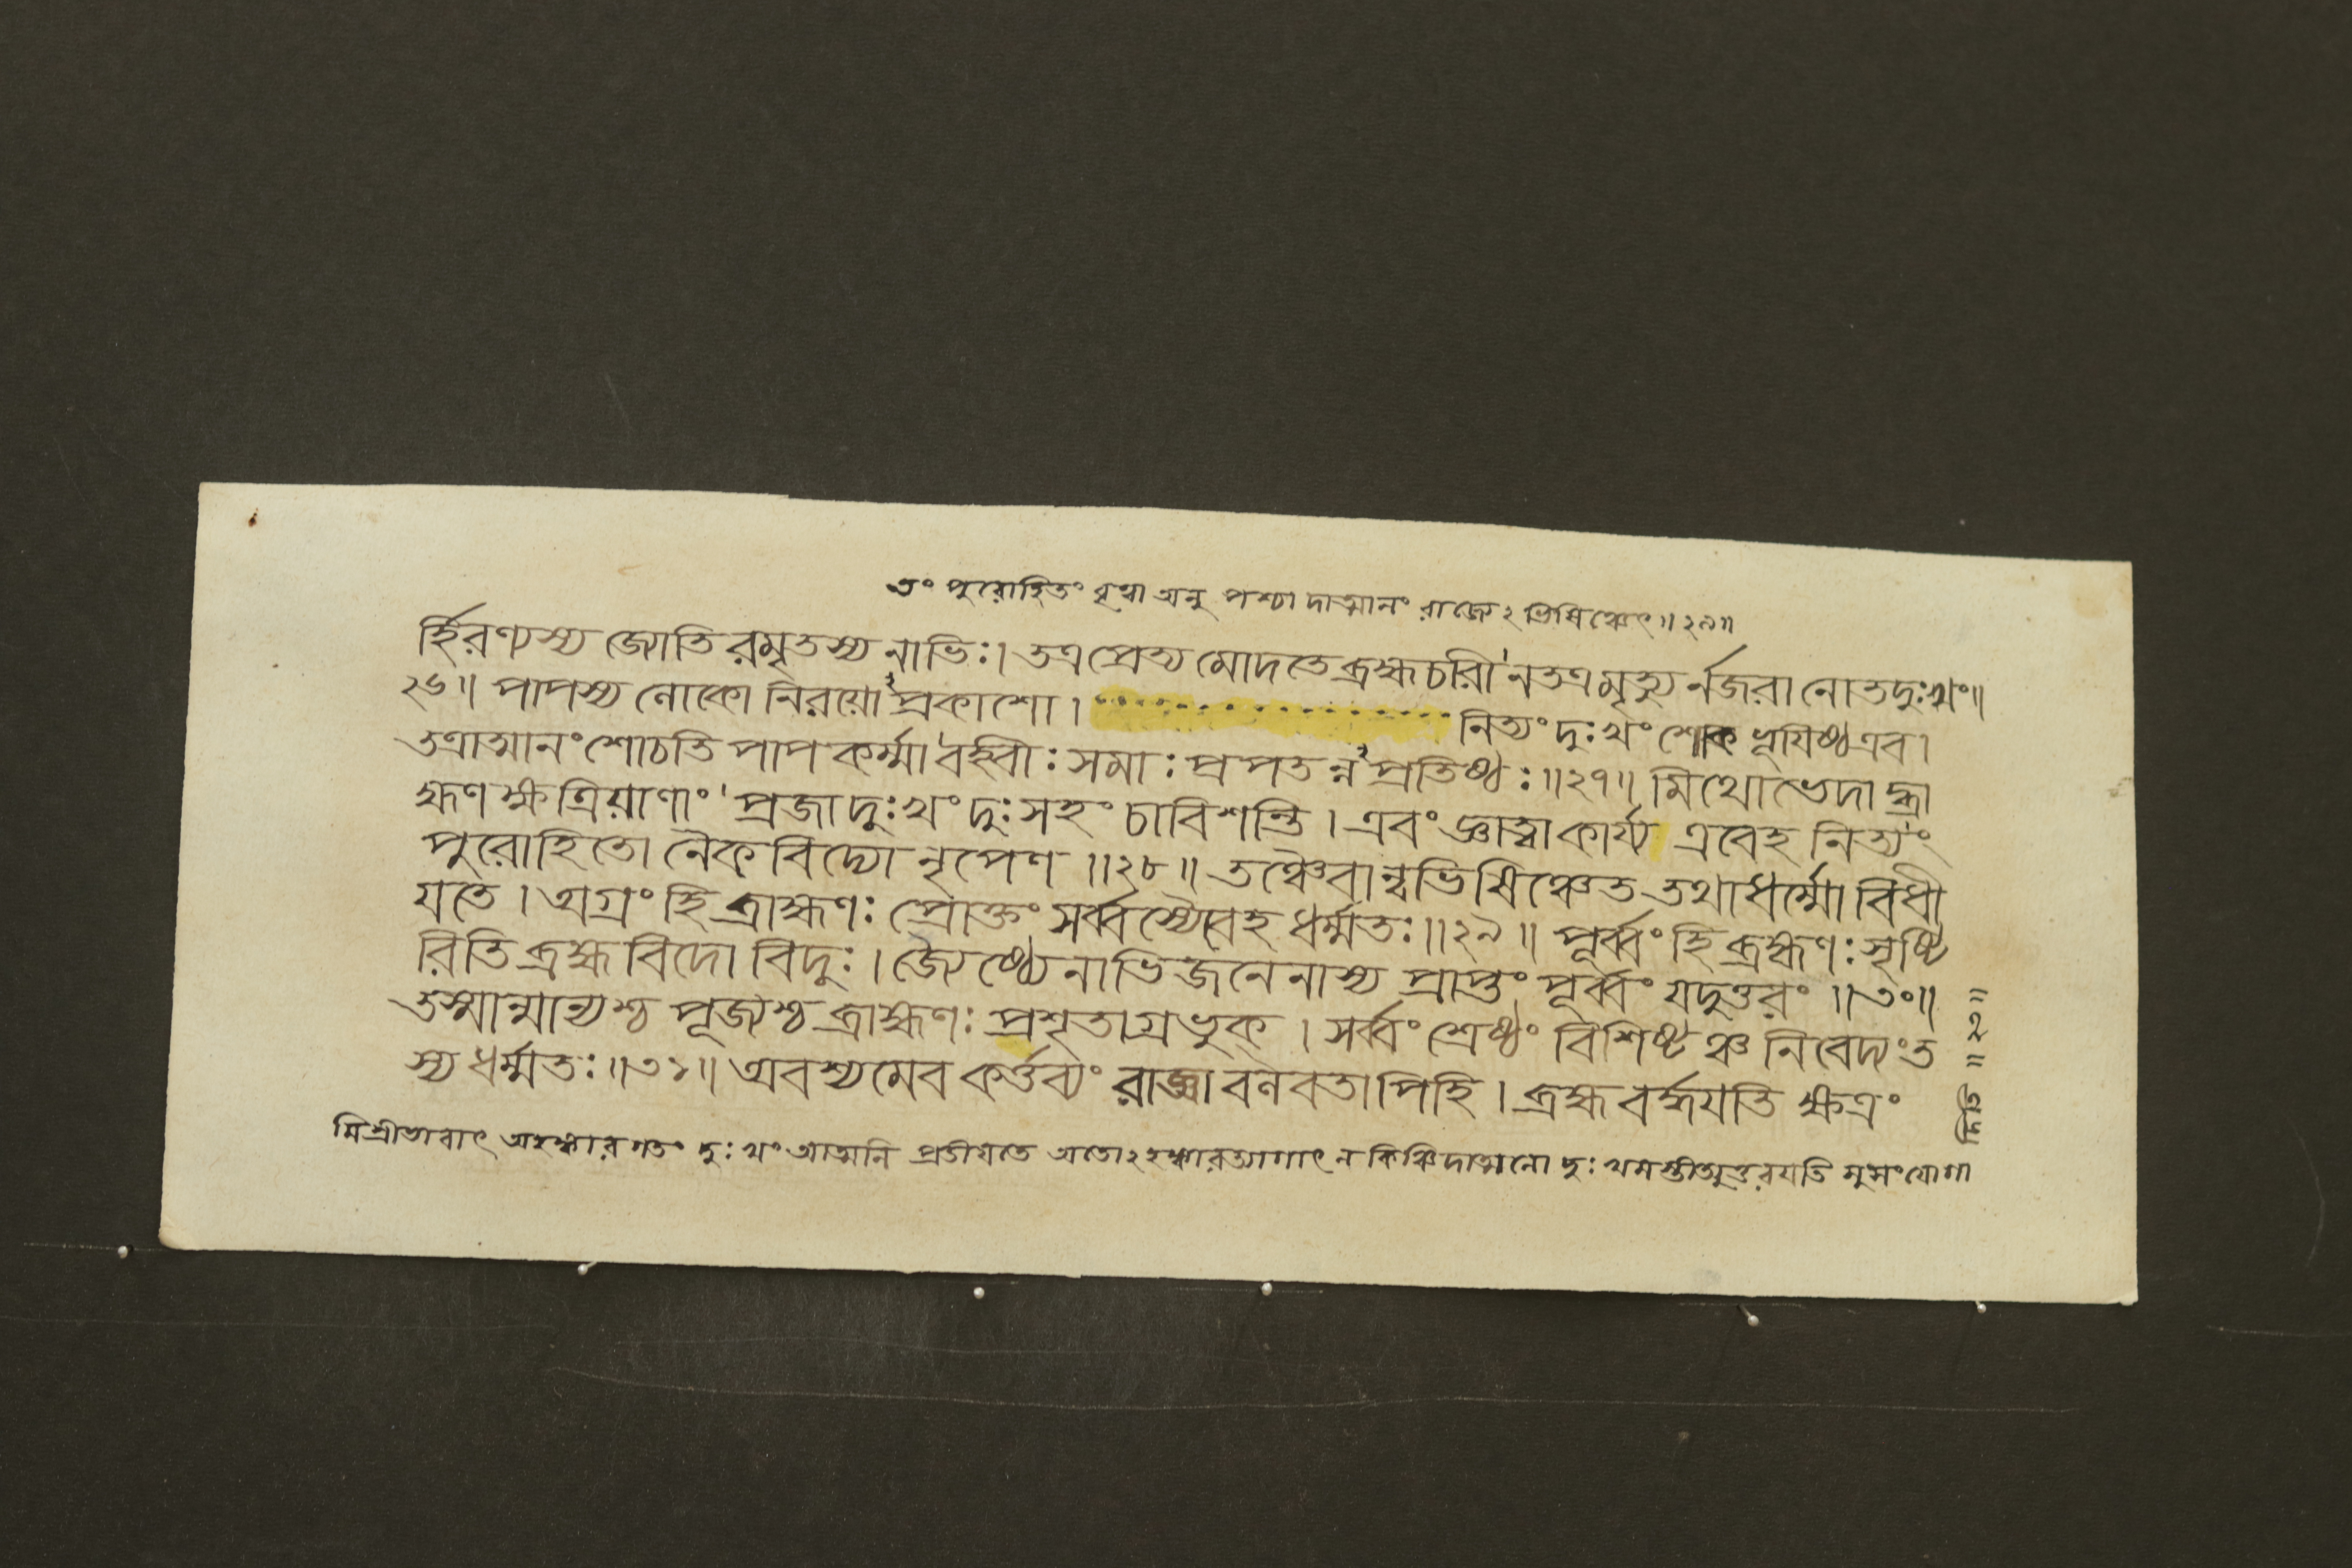 তং পুরোহিতং বৃত্বা অনু পশ্চাদাত্মানং রাজ্যেঽভিষিঞ্চেৎ॥২৯॥
র্হিরণ্যস্য জ্যোতিরমৃতস্য নাভিঃ। তত্র প্রেত্য মোদতে ব্রহ্মচরী ন তত্র মৃত্যুর্নজরা নোত দুঃখং॥
২৬॥ পাপস্য লোকো নিরয়োঽপ্রকাশো। নিত্যং দুঃখং শোক ভূয়িষ্ঠ এব।
তত্রাত্মানং শোচতি পাপকর্ম্মা বহ্বীঃ সমাঃ প্রপতন্নঽপ্রতিষ্ঠঃ॥২৭॥ মিথোভেদাদ্ব্রা
হ্মণক্ষত্রিয়াণাং প্রজা দুঃখং দুঃসহং চাবিশন্তি। এবং জ্ঞাত্বা কার্য্য এবেহ নিত্যং
পুরোহিতো নৈকবিদ্যো নৃপেণ॥২৮॥ তঞ্চৈবান্বভিষিঞ্চেত তথা ধর্ম্মো বিধী
যতে। অগ্রং হি ব্রাহ্মণঃ প্রোক্তং সর্ব্বস্যৈবেহ ধর্ম্মতঃ॥২৯॥ পূর্ব্বং হি ব্রহ্মণঃ সৃষ্টি
রিতি ব্রহ্মবিদো বিদুঃ। জ্যৈষ্ঠ্যেনাভিজনেনাস্য প্রাপ্তং পূর্ব্বং যদুত্তরং॥৩০॥
তস্মান্মান্যশ্চ পূজ্যশ্চ ব্রাহ্মণঃ প্রশৃতাগ্রভুক্। সর্ব্বং শ্রেষ্ঠং বিশিষ্টঞ্চ নিবেদ্যং ত
স্য ধর্ম্মতঃ॥৩১॥ অবশ্যমেব কর্ত্তব্যং রাজ্ঞা বলবতাপি হি। ব্রহ্ম বর্দ্ধয়তি ক্ষত্রং
মিশ্রীভাবাৎ অহঙ্কারগতং দুঃখং আত্মনি প্রতীয়তে অতোঽহঙ্কারত্যাগাৎ ন কিঞ্চিদাত্মনো দুঃখমস্তীত্যুত্তরয়তি সুসংযোগা
দিতি॥২২॥